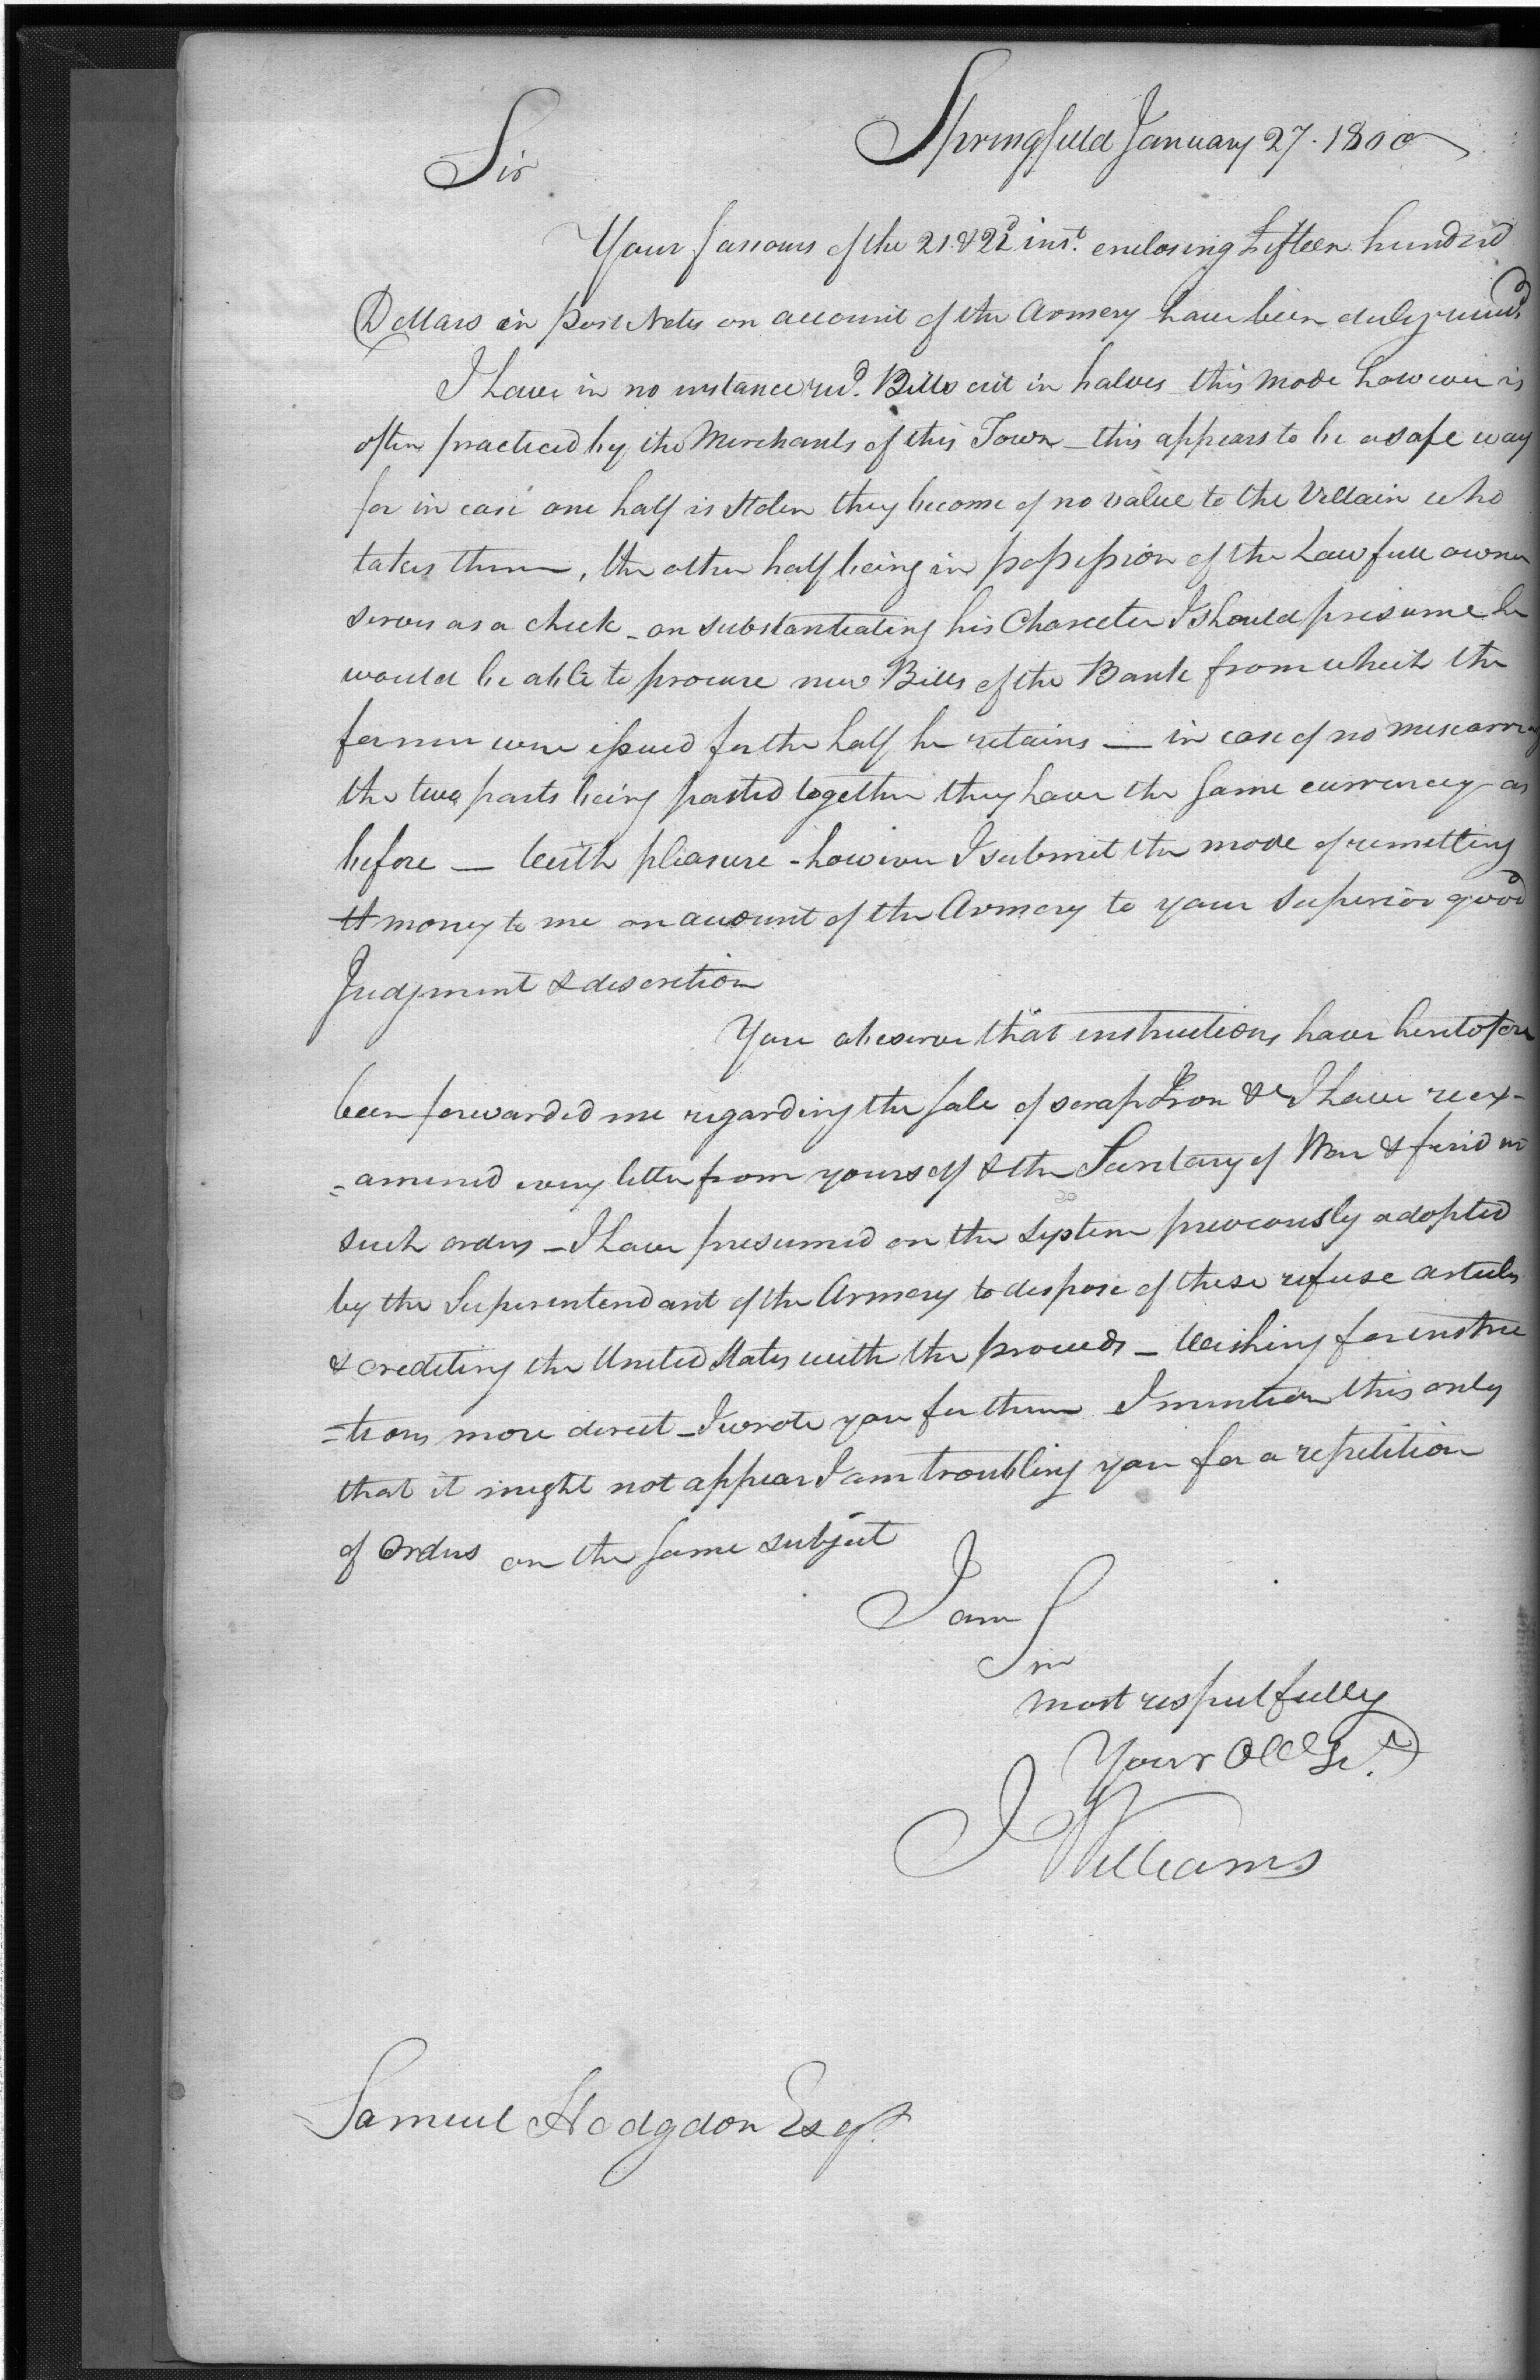 Springfield January 27. 1800
Sir
Your favours of the 21 & 22d inst. enclosing fifteen hundred
Dollars in Post Notes on account of the Armery have been duly receiv'd
I have in no instance recd. Bills cut in halves this mode however is
often practiced by the Merchants of this Town _ this appears to be a safe way
for in case one half is stolen they become of no value to the Villain who
takes them, the other half being in possession of the Lawfull owner
serves as a check _ on substantiating his Charecter I should presume he
would be able to procure new Bills of the Bank from which the
former were issued for the half he retains _ in case of no miscarri
the two parts being pasted together they have the same currency as
before _ With pleasure - however I submit the mode of remitting
money to me on account of the Armery to your superior good
Judgment & discretion
You observe that instructions have heretofore
been forwarded me regarding the sale of scrap Iron &c I have reex-
=amined every letter from yourself & the Secretary of War & find no
such orders _ I have presumed on the system previously adopted
by the Superintendant of the Armery to dispose of these refuse articles
& crediting the United States with the proceeds _ Wishing for instruc
=tions more direct _ I wrote you for them I mention this only
that it might not appear I am troubling you for a repetition
of orders on the same subject
I am
Sir
most respectfully
Your Obt Sert.
J Williams
Samuel Hodgdon Esqr.